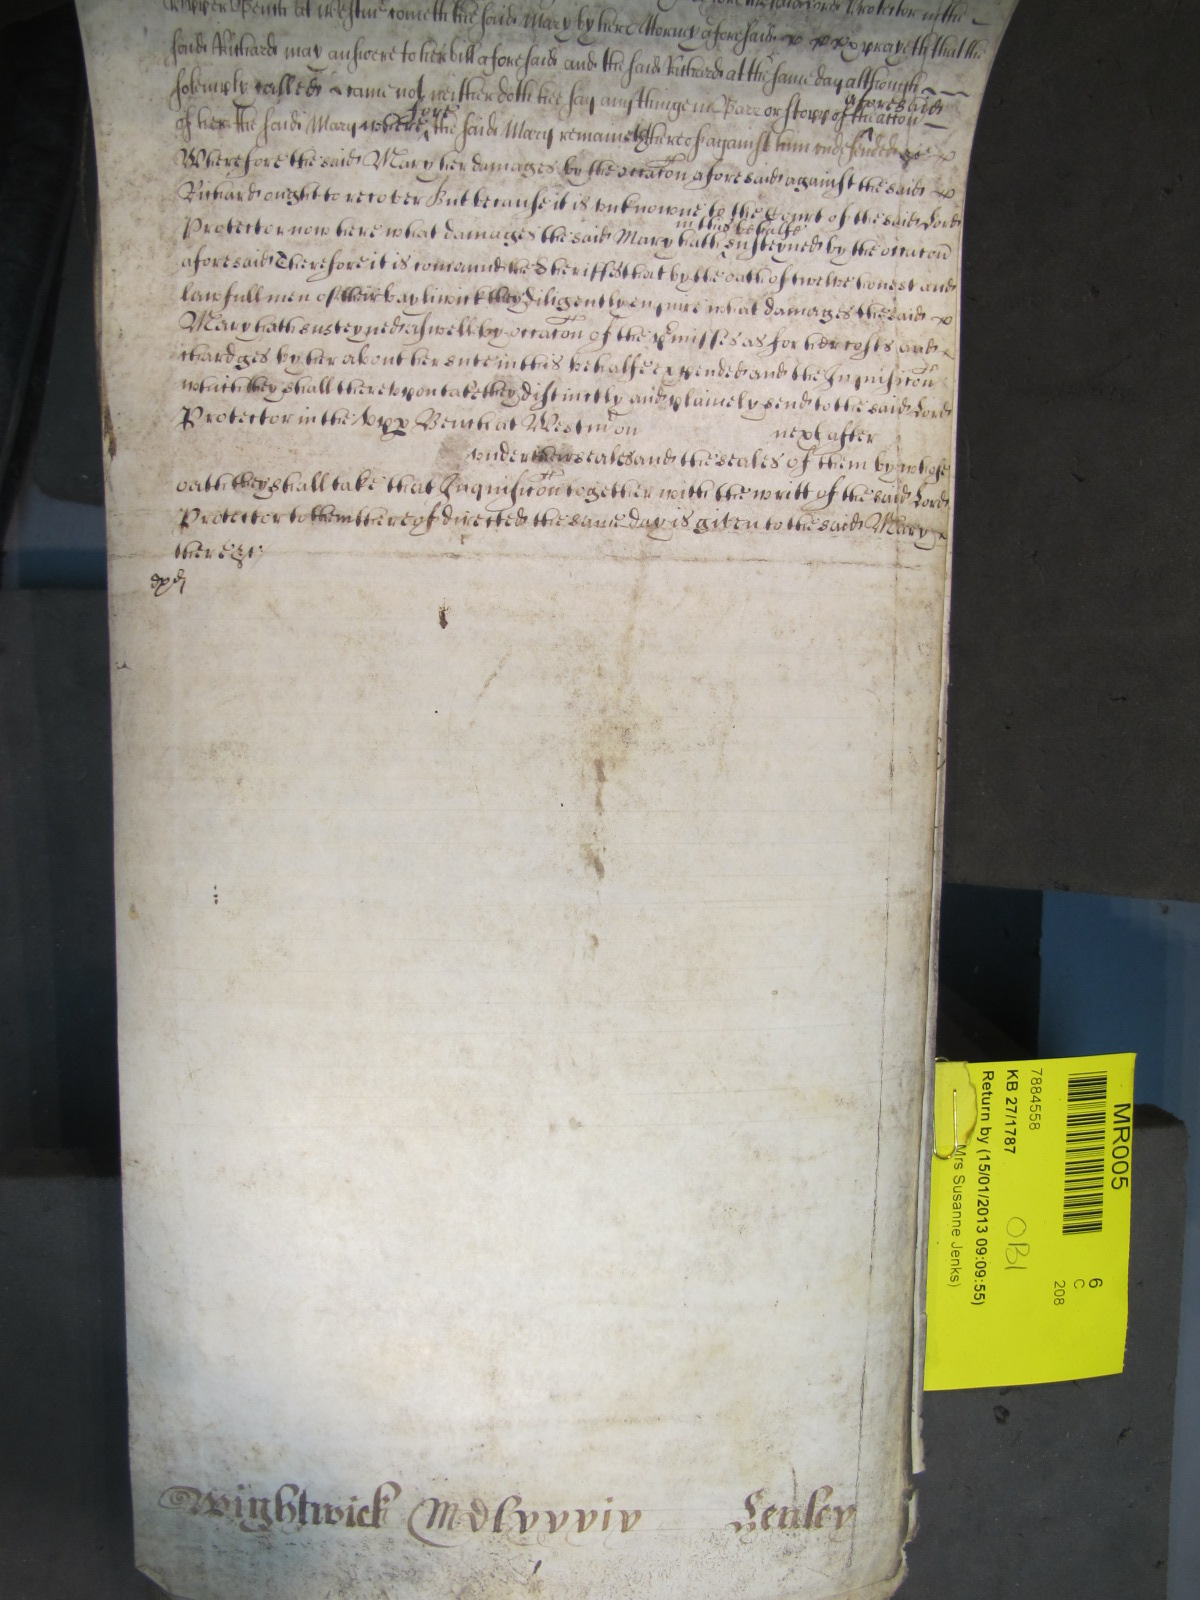 Upper Bench at Westm cometh the said Mary by here Attorney aforesaid prayeth that the
said Richard may answere to her bill aforesaid and the said Richard at the same day although
solemply called came not neither doth hee say any thinge in Barr or stopp of the accon aforesaid
of her the said Mary wherefore the said Mary remaineth thereof against him undefended &c
Wherefore the said Mary her damages by the occacon aforesaid against the said
Richard ought to recover But because it is unknowne to the Court of the said Lord
Protector now here what damages the said Mary hath susteyned in this behalfe by the occacon
aforesaid Therefore it is comaunded the Sheriffes that by the oath of twelve honest and
lawfull men of their bayliwick they diligently enquire what damages the said
Mary hath susteyned aswell by occacon of the pmisses as for her costs and
chardges by her about her sute in this behalfe expended and the Inquisicon
which they shall thereupon take they distinctly and plainely send to the said Lord
Protector in the Upp Bench at Westm on next after
under their seales and the seales of them by whose
oath they shall take that Inquisicon together with the writt of the said Lord
Protector to them thereof directed the same day is given to the said Mary
there &c
Wightwick Mdlxxxiv Henley
MR005
6
C
208
7884558
KB 27/1787
OB1
Return by (15/01/2013 09:09:55)
Mrs Susanne Jenks)